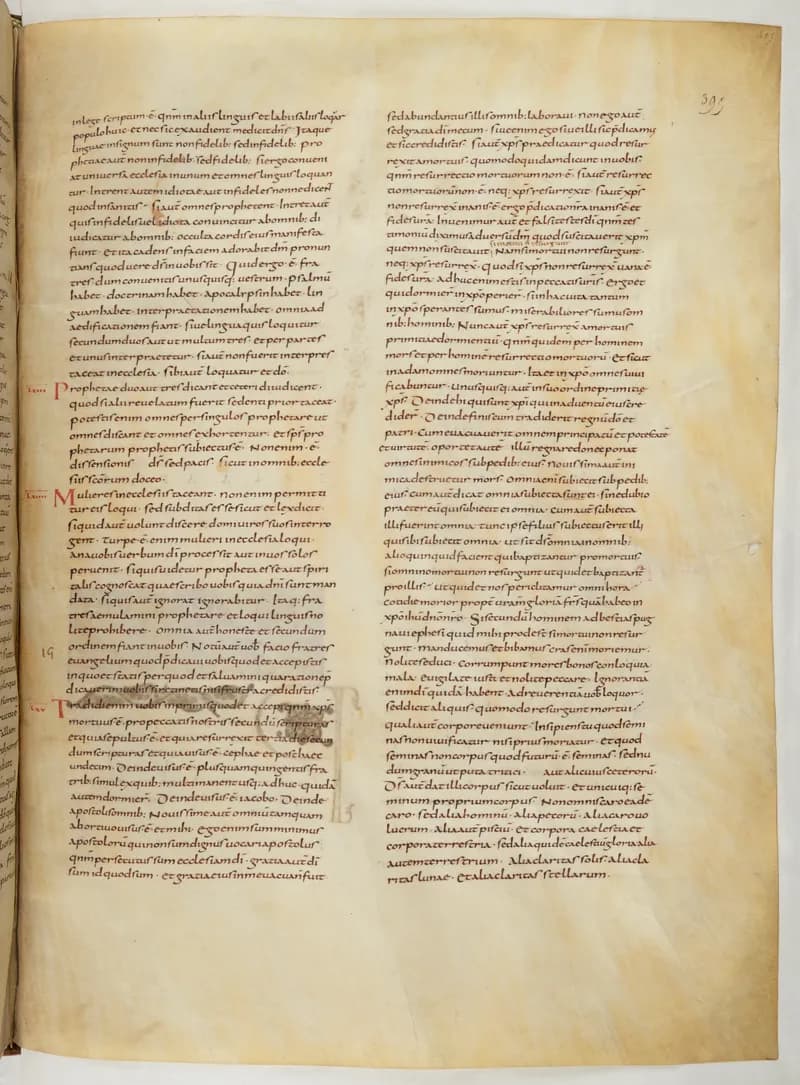 399
inlege scriptum ē qnm inaliis linguis et labiis aliis loquar
populo huic et nec sic exaudient me dicit dn̄s Itaque
linguae insignum sunt non fidelib; sed infidelib; pro
phetae aut non infidelib; sed fidelib; si ergo conueni
at uniuersa ecclesia inunum et omnes linguis loquan
tur Intrent autem idiotae aut infideles nonne dicent
quod insanitis si aut omnes prophetent Intret aut
quis infidelis uel idiota conuincitur abomnib; di
iudicatur abomnib; occulta cordis eius manifesta
fiunt Et ita cadens infaciem adorabit dm̄ pronun
tians quod uere ds̄ inuobis sit Quid ergo ē fra
tres dum conuenitis unusquisq; uestrum psalmū
habet doctrinam habet apocalypsin habet lin
guam habet Interpraetationem habet omnia ad
aedificationem fiant siue lingua quis loquitur
secundum duos aut ut multum tres et per partes
et unus interpraetetur si aut non fuerit interpres
taceat inecclesia sibi aut loquatur et dō
Prophetae duo aut tres dicant et ceteri diiudicent
quod si alii reuelatum fuerit sedenti prior taceat
potestis enim omnes per singulos prophetare ut
omnes discant et omnes exhortentur Et sp̄s pro
phetarum prophetis subiecti s̄ Non enim ē
dissensionis ds̄ sed pacis sicut in omnib; eccle
siis sc̄orum doceo
Mulieres inecclesiis taceant non enim permitti
tur eis loqui sed subditas esse sicut et lex dicit
si quid aut uolunt discere domi uiros suos interro
gent Turpe ē enim mulieri inecclesia loqui
an auobis uerbum dī processit aut inuos solos
peruenit si quis uidetur propheta esse aut spiri
talis cognoscat quae scribo uobis quia dn̄i sunt man
data si quis aut ignorat ignorabitur Itaq; fra
tres aemulamini prophetare et loqui linguis no
lite prohibere omnia aut honeste et secundum
ordinem fiant inuobis Notū aut uob facio fratres
19
euangelium quod p̄dicaui uobis quod et accepistis
inquo et statis per quod et saluamini qua ratione p̄
dicauerim uobis si tenetis nisi frustra credidistis
Tradidi enim uobis inprimis quod et accepi qnm xp̄s
mortuus ē pro peccatis nostris secundū scripturas
et quia sepultus ē et quia resurrexit tertia die secun
dum scripturas et quia uisus ē cephae et post haec
undecim Deinde uisus ē plus quam quingentis fra
trib; simul ex quib; multi manent usq; adhuc quidā
autem dormier̄ Deinde uisus ē iacobo Deinde
apostolis omnib; Nouissime aut omniū tamquam
abortiuo uisus ē et mihi Ego enim sum minimus
apostoloru qui non sum dignus uocari apostolus
qnm persecutus sum ecclesiam dī gratia aut dī
sum id quod sum et gratia eius in me uacua n̄ fuit
sed abundantius illis omnib; laboraui non ego aut
sed gratia dī mecum siue enim ego siue illi sic p̄dicamus
et sic credidistis si aut xp̄s praedicatur quod resur
rexit amortuis quomodo quidam dicunt inuobis
qnm resurrectio mortuorum non ē si aut resurrec
tio mortuorū non ē neq; xp̄s resurrexit si aut xp̄s
non resurrex̄ inanis ē ergo p̄dicatio nr̄a inanis ē et
fides ur̄a Inuenimur aut et falsi testes dī qnm tes
timoniū diximus aduersū dm̄ quod suscitauerit xp̄m
quem non suscitauit Nam si mortui non resurgunt
neq; xp̄s resurrex̄ Quod si xp̄s non resurrex̄ uana ē
fides ur̄a Adhuc enim estis inpeccatis uris Ergo et
qui dormier̄ in xp̄o perier̄ si inhac uita tantum
in xp̄o sperantes sumus miserabiliores sumus om
nib; hominib; Nunc aut xp̄s resurrex̄ amortuis
primitiae dormientiū qnm quidem per hominem
mors et per homine resurrectio mortuorū Et sicut
inadam omnes moriuntur Ita et in xp̄o omnes uiui
ficabuntur unusquisq; aut insuo ordine primitiae
xp̄s Deinde hi qui sunt xp̄i qui inaduentū eius cre
dider̄ Deinde finis cum tradiderit regnū dō et
patri cum euacuauerit omnem principatū et potestatē
et uirtutē oportet aute illū regnare donec ponat
omnes inimicos sub pedib; eius Nouissima aut ini
mica destruetur mors Omnia eni subiecit sub pedib;
eius cum aut dicat omnia subiecta sunt ei sine dubio
praeter eū qui subiecit ei omnia Cum aut subiecta
illi fuerint omnia tunc ipse filius subiectus erit illi
qui sibi subiecit omnia ut sit ds̄ omnia in omnib;
alioquin quid facient qui baptizantur pro mortuis
si omnino mortui non resurgunt ut quid et baptizant̄
pro illis ut quid et nos periclitamur omni hora
cotidie morior propt̄ uram gloria frs̄ quā habeo in
xp̄o ihū dn̄o nr̄o Si secundū hominem ad bestias pug
naui ephesi quid mihi prodest si mortui non resur
gunt manducemus et bibamus cras enī moriemur
nolite seduci Corrumpunt mores bonos conloquia
mala Euigilate iusti et nolite peccare Ignorantiā
enim dī quidā habent Ad reuerentiā uob loquor
sed dicit aliquis quomodo resurgunt mortui
quali aut corpore ueniunt Insipiens tu quod semi
nas non uiuificatur nisi prius moriatur Et quod
seminas non corpus quod futurū ē seminas sed nu
dum granū ut puta tritici aut alicuius ceterorū
Ds̄ aut dat illi corpus sicut uoluit Et unicuiq; se
minum proprium corpus Non omnis caro eadē
caro sed alia hominū Alia pecorū Alia caro uo
lucrum Alia aut pisciū Et corpora caelestia et
corpora terrestria sed alia quidē caelestiū gloria alia
autem terrestrium Alia claritas solis alia cla
ritas lunae Et alia claritas stellarum